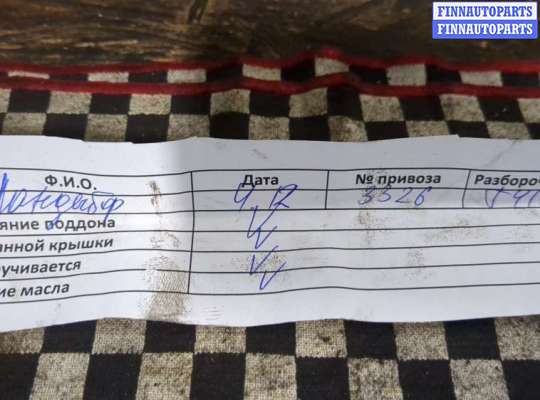 FINNAUTOPARTS
FINNAUTOPARTS
Ф.И.О. Дата № привоза Разбороч
4 12 3326
яние поддона
анной крышки
учивается
ие масла